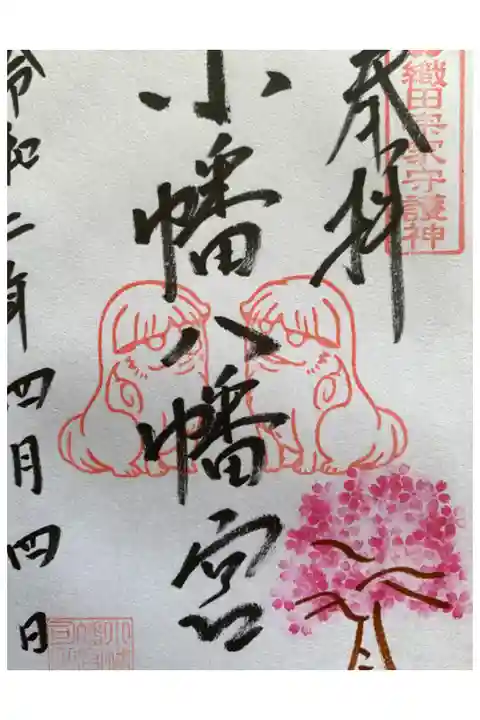 奉拝
織田宗家守護神
小幡八幡宮
令和二年四月四日